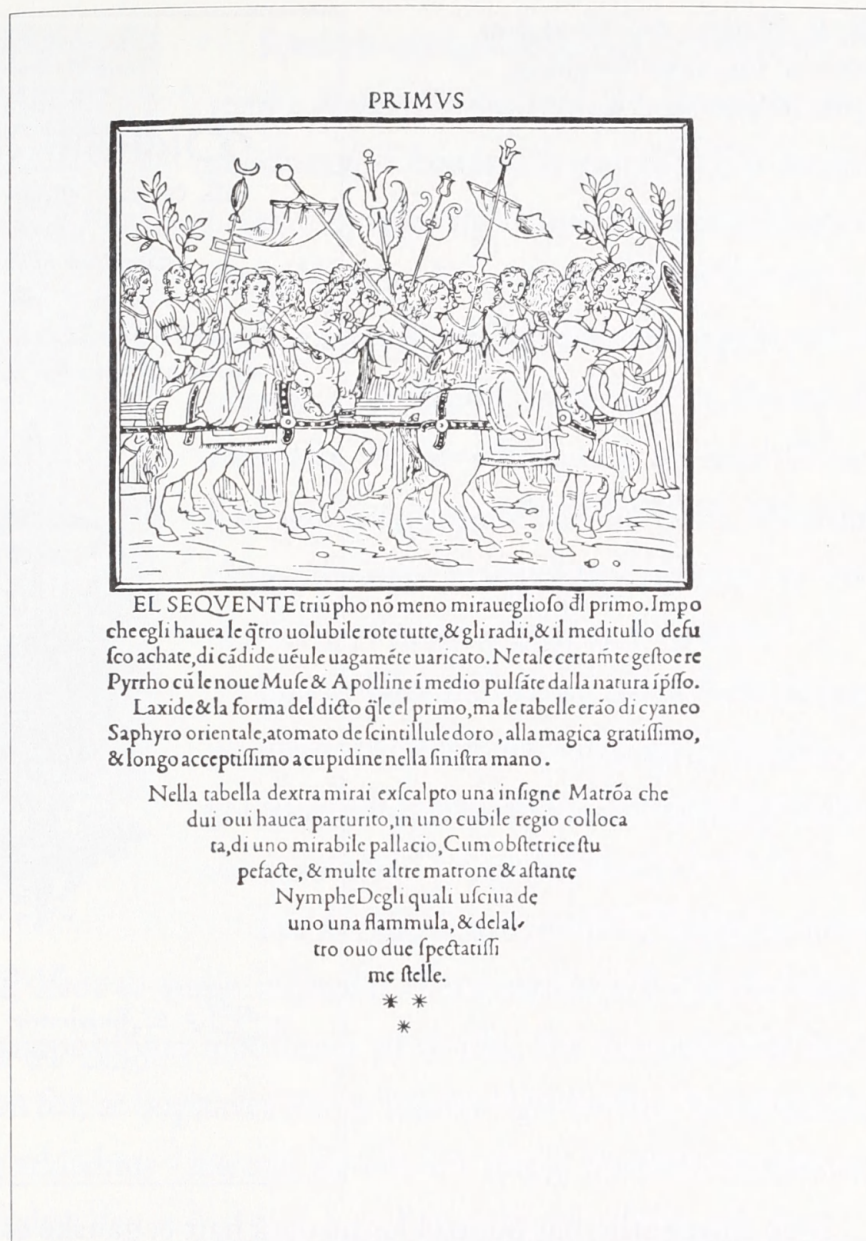 PRIMVS
EL SEQVENTE triūpho nō meno miraueglioſo dl̄ primo. Impo
che egli hauea le q̄tro uolubile rote tutte, & gli radii, & il meditullo defu
ſco achate, di cādide uēule uagamēte uaricato. Ne tale certam̄te geſtoe re
Pyrrho cū le noue Muſe & Apolline ī medio pulſāte dalla natura īp̄ſſo.
Laxide & la forma del dicto q̄le el primo, ma le tabelle erāo di cyaneo
Saphyro orientale, atomato de ſcintillule doro, alla magica gratiſſimo,
& longo acceptiſſimo a cupidine nella ſiniſtra mano.
Nella tabella dextra mirai exſcalpto una inſigne Matrōa che
dui oui hauea parturito, in uno cubile regio colloca
ta, di uno mirabile pallacio, Cum obſtetrice ſtu
pefacte, & multe altre matrone & aſtante
Nymphe Degli quali uſciua de
uno una flammula, & delal-
tro ouo due ſpectatiſſi
me ſtelle.
* *
*